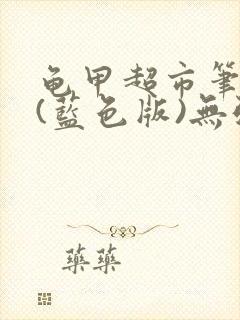 龟甲超市筆
(藍色版)無
藥藥